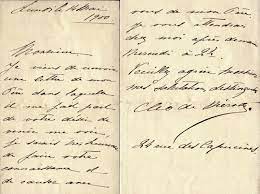 Lundi le 14 Mai
1900
Monsieur
Je viens de recevoir
une lettre de mon
dans laquelle
il me fait part
de votre désir de
venir me voir,
je serais très heureuse
de faire votre
connaissance et
de causer avec
vous de mon
je vous attendrai
chez moi après demain
mercredi à 2h.
Veuillez agréer Monsieur
mes salutations distinguées
Cléo de Mérode
rue des Capucines